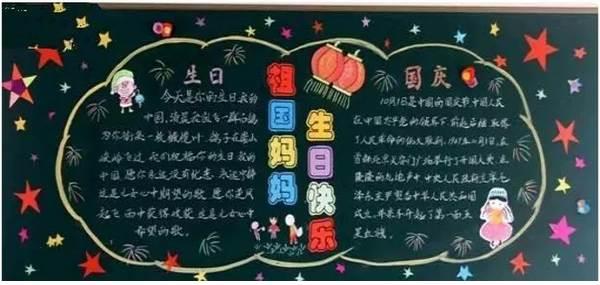 生日
今天是你的生日我的
中国,清晨我放飞一群白鸽
为你衔来一枚橄榄叶 鸽子在崇山
峻岭飞过 我们祝福你的生日 我的
中国 愿你永远没有忧患 永远宁静
这是儿女心中期望的歌 愿你逆风
起飞雨中获得收获 这是儿女心中
希望的歌
祖国妈妈
生日快乐
国庆
10月1日是中国的国庆节 中国人民
在中国共产党的领导下,前赴后继,取得
了人民革命的伟大胜利。
首都北京天安门广场举行了 在
隆隆的礼炮声中 中央人民政府主席毛
泽东庄严宣告中华人民共和国
成立,并亲手升起了第一面五
星红旗。